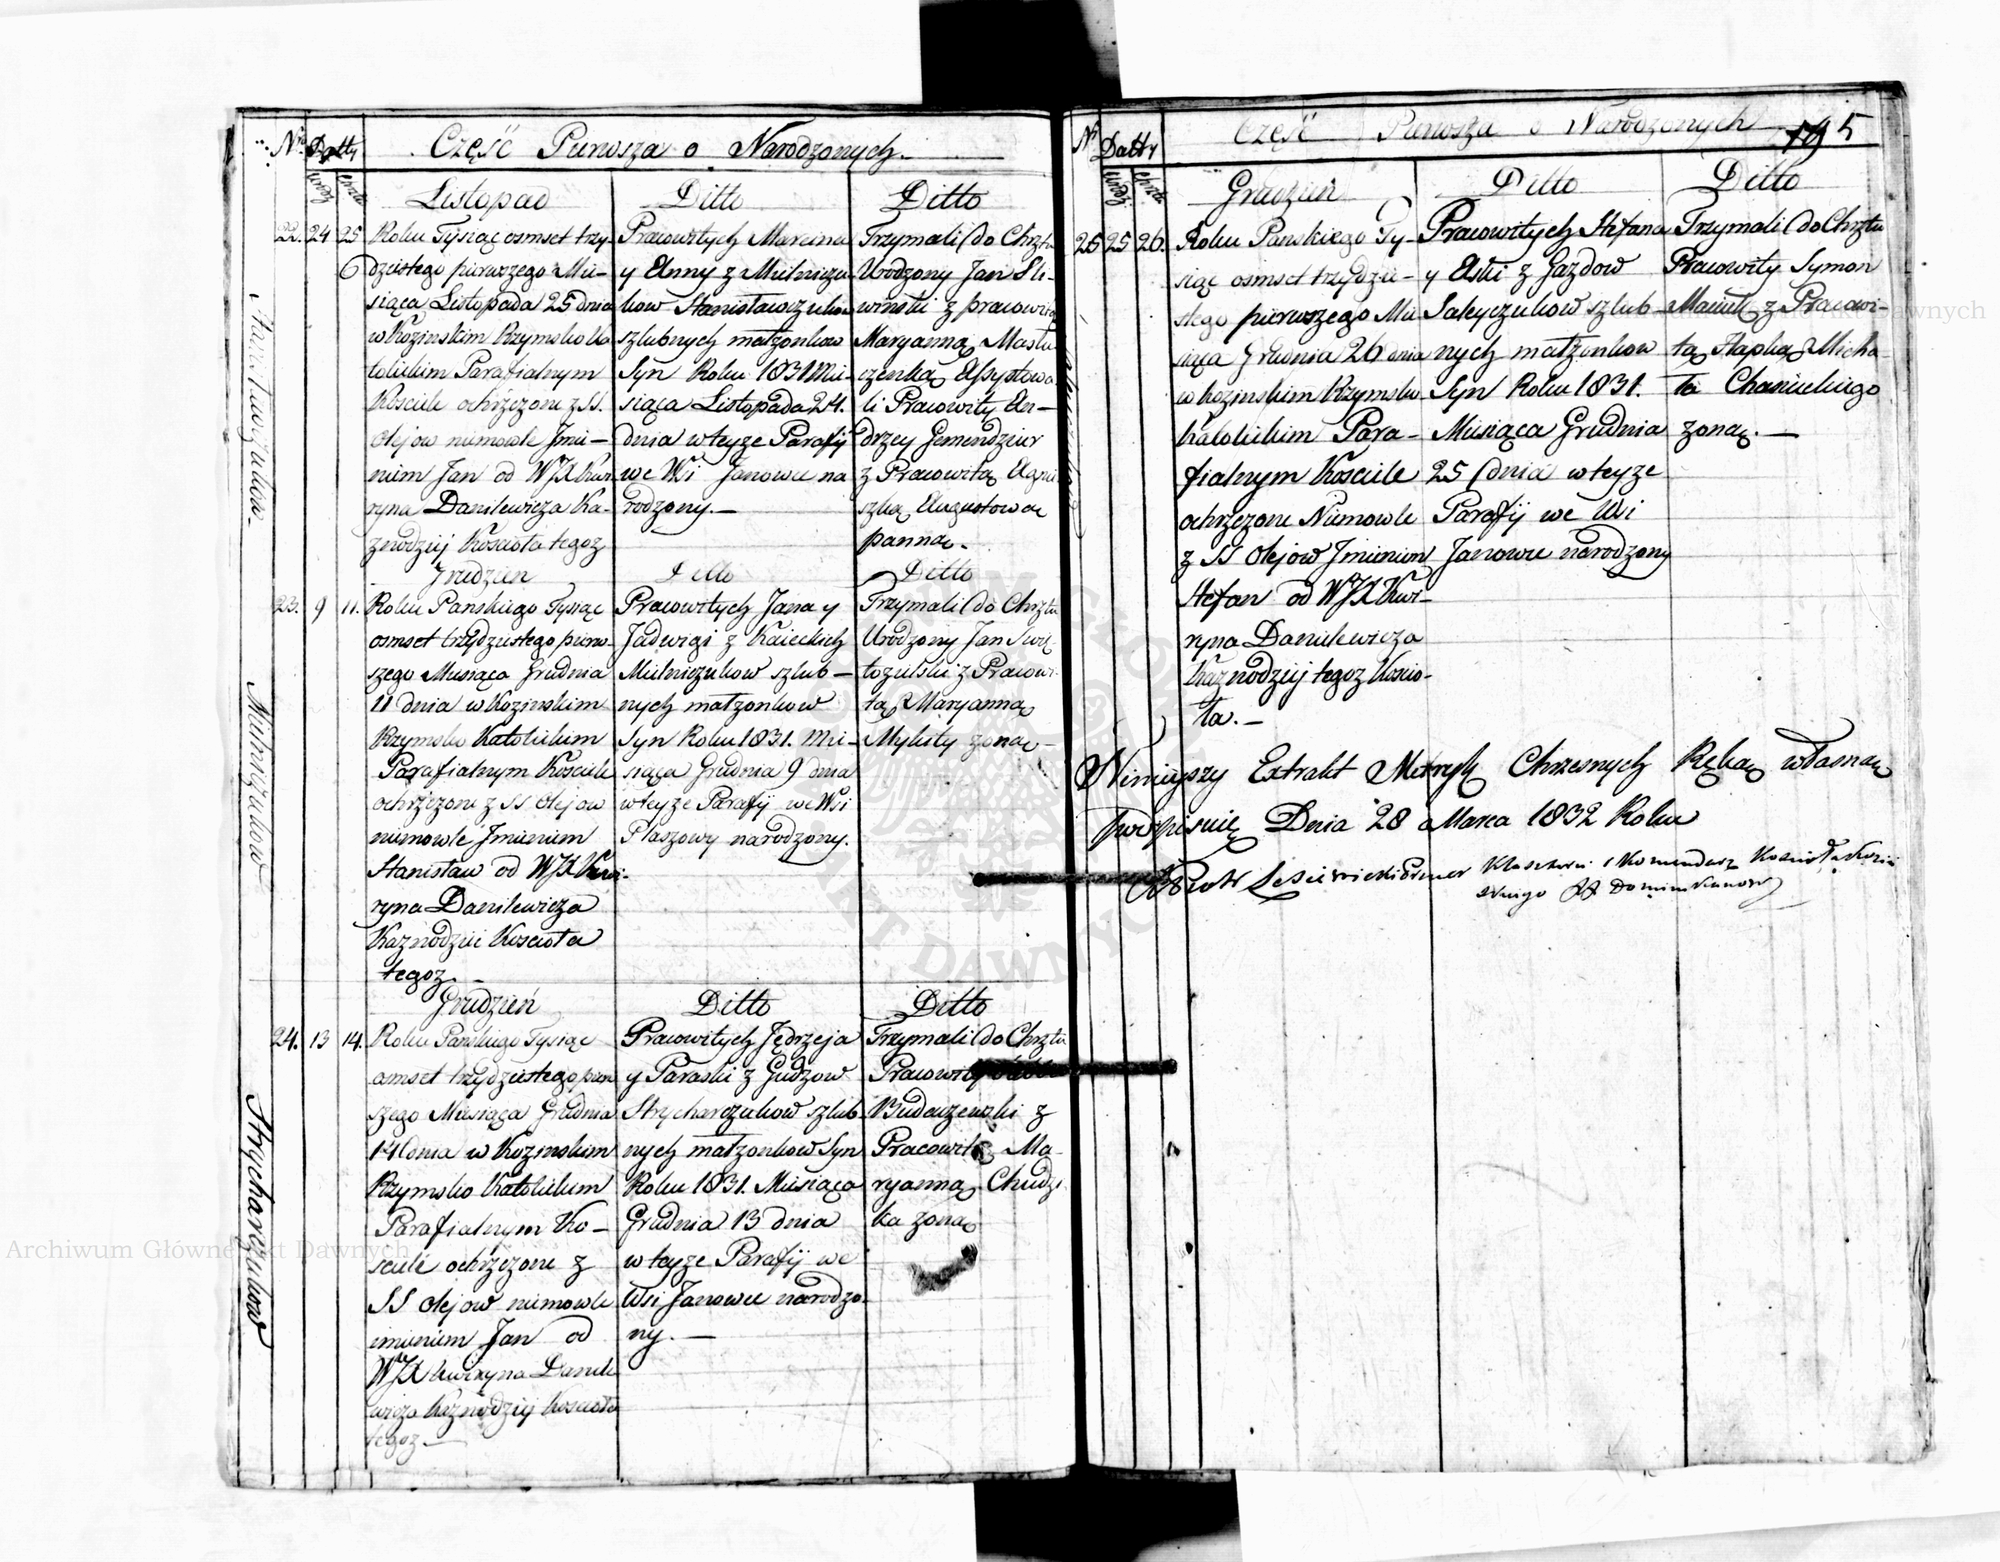 Nro Datty Część Pierwsza o Narodzonych
urodz chrztu
Listopad Ditto Ditto
22. 24 25
Roku Tysiąc osmset trzy-
dziestego pierwszego Mie-
siąca Listopada 25 dnia
w Kozinskim Rzymsko Ka
tolickim Parafialnym
Kosciele ochrzczone z SS.
Olejow niemowle Jmie-
niem Jan od WJX Kwi
ryna Danilewicza Ka-
znodziej Kosciola tegoz
Pracowitych Marcina
y Anny z Mielniczu
kow Stanisławczukow
szlubnych małzonkow
Syn Roku 1831 Mie-
siąca Listopada 24.
dnia w teyze Parafij
we Wsi Janowce na
rodzony.—
Trzymali do Chrztu
Urodzony Jan Sli-
winski z pracowitą
Maryanną
Assystowa
li Pracowity An-
drzey
z Pracowitą Agnie
szką Augustowną
panną.
Mielniczukow
Grudzien Ditto Ditto
23. 9 11.
Roku Panskiego Tysiąc
osmset trzydziestego pierw-
szego Miesiąca Grudnia
11 dnia w Kozinskim
Rzymsko Katolickim
Parafialnym Kosciele
ochrzczone z SS Olejow
niemowle Jmieniem
Stanisław od WJX Kwi-
ryna Danilewicza
Kaznodziei Kosciola
tegoz.
Pracowitych Jana y
Jadwigi z
Mielniczukow szlub-
nych małzonkow
Syn Roku 1831. Mie-
siąca Grudnia 9 dnia
w teyze Parafij we Wsi
Płaszowy narodzony.
Trzymali do Chrztu
Urodzony Jan
z Pracowi
tą Maryanną
zoną—
Strycharczukow
Grudzień Ditto Ditto
24. 13 14.
Roku Pańskiego Tysiąc
osmset trzydziestego pierw
szego Miesiąca Grudnia
14 dnia w Kozinskim
Rzymsko Katolickim
Parafialnym Ko-
sciele ochrzczone z
SS Olejow niemowle
imieniem Jan od
WJX Kwiryna Danile
wicza Kaznodziij Kosciola
tegoz.—
Pracowitych Jędrzeja
y Paraski z Gudzow
Strycharczukow szlub
nych małzonkow Syn
Roku 1831. Miesiąca
Grudnia 13 dnia
w teyze Parafij we
Wsi Janowce narodzo-
ny.—
Trzymali do Chrztu
Pracowity
z
Pracowitą Ma-
ryanną
zoną
Nr Datty Część Pierwsza o Narodzonych 195
urodz chrztu
Grudzień Ditto Ditto
25 25 26.
Roku Panskiego Ty-
siąc osmset trzydzie-
stego pierwszego Mie
siąca Grudnia 26 dnia
w Kozinskim Rzymsko
Katolickim Para-
fialnym Kosciele
ochrzczone Niemowle
z SS Olejow Jmieniem
Stefan od WJX Kwi-
ryna Danilewicza
Kaznodziij tegoz Koscio-
ła.—
Pracowitych Stefana
y z Gazdow
szlub-
nych małzonkow
Syn Roku 1831.
Miesiąca Grudnia
25 dnia w teyze
Parafij we Wsi
Janowce narodzony
Trzymali do Chrztu
Pracowity Symon
z Pracowi-
tą Micha-
ła
zoną.—
Nineiyszy Extrakt Metryk Chrzesnych Ręką własną
podpisuię Dnia 28 Marca 1832 Roku
Archiwum Główne Akt Dawnych